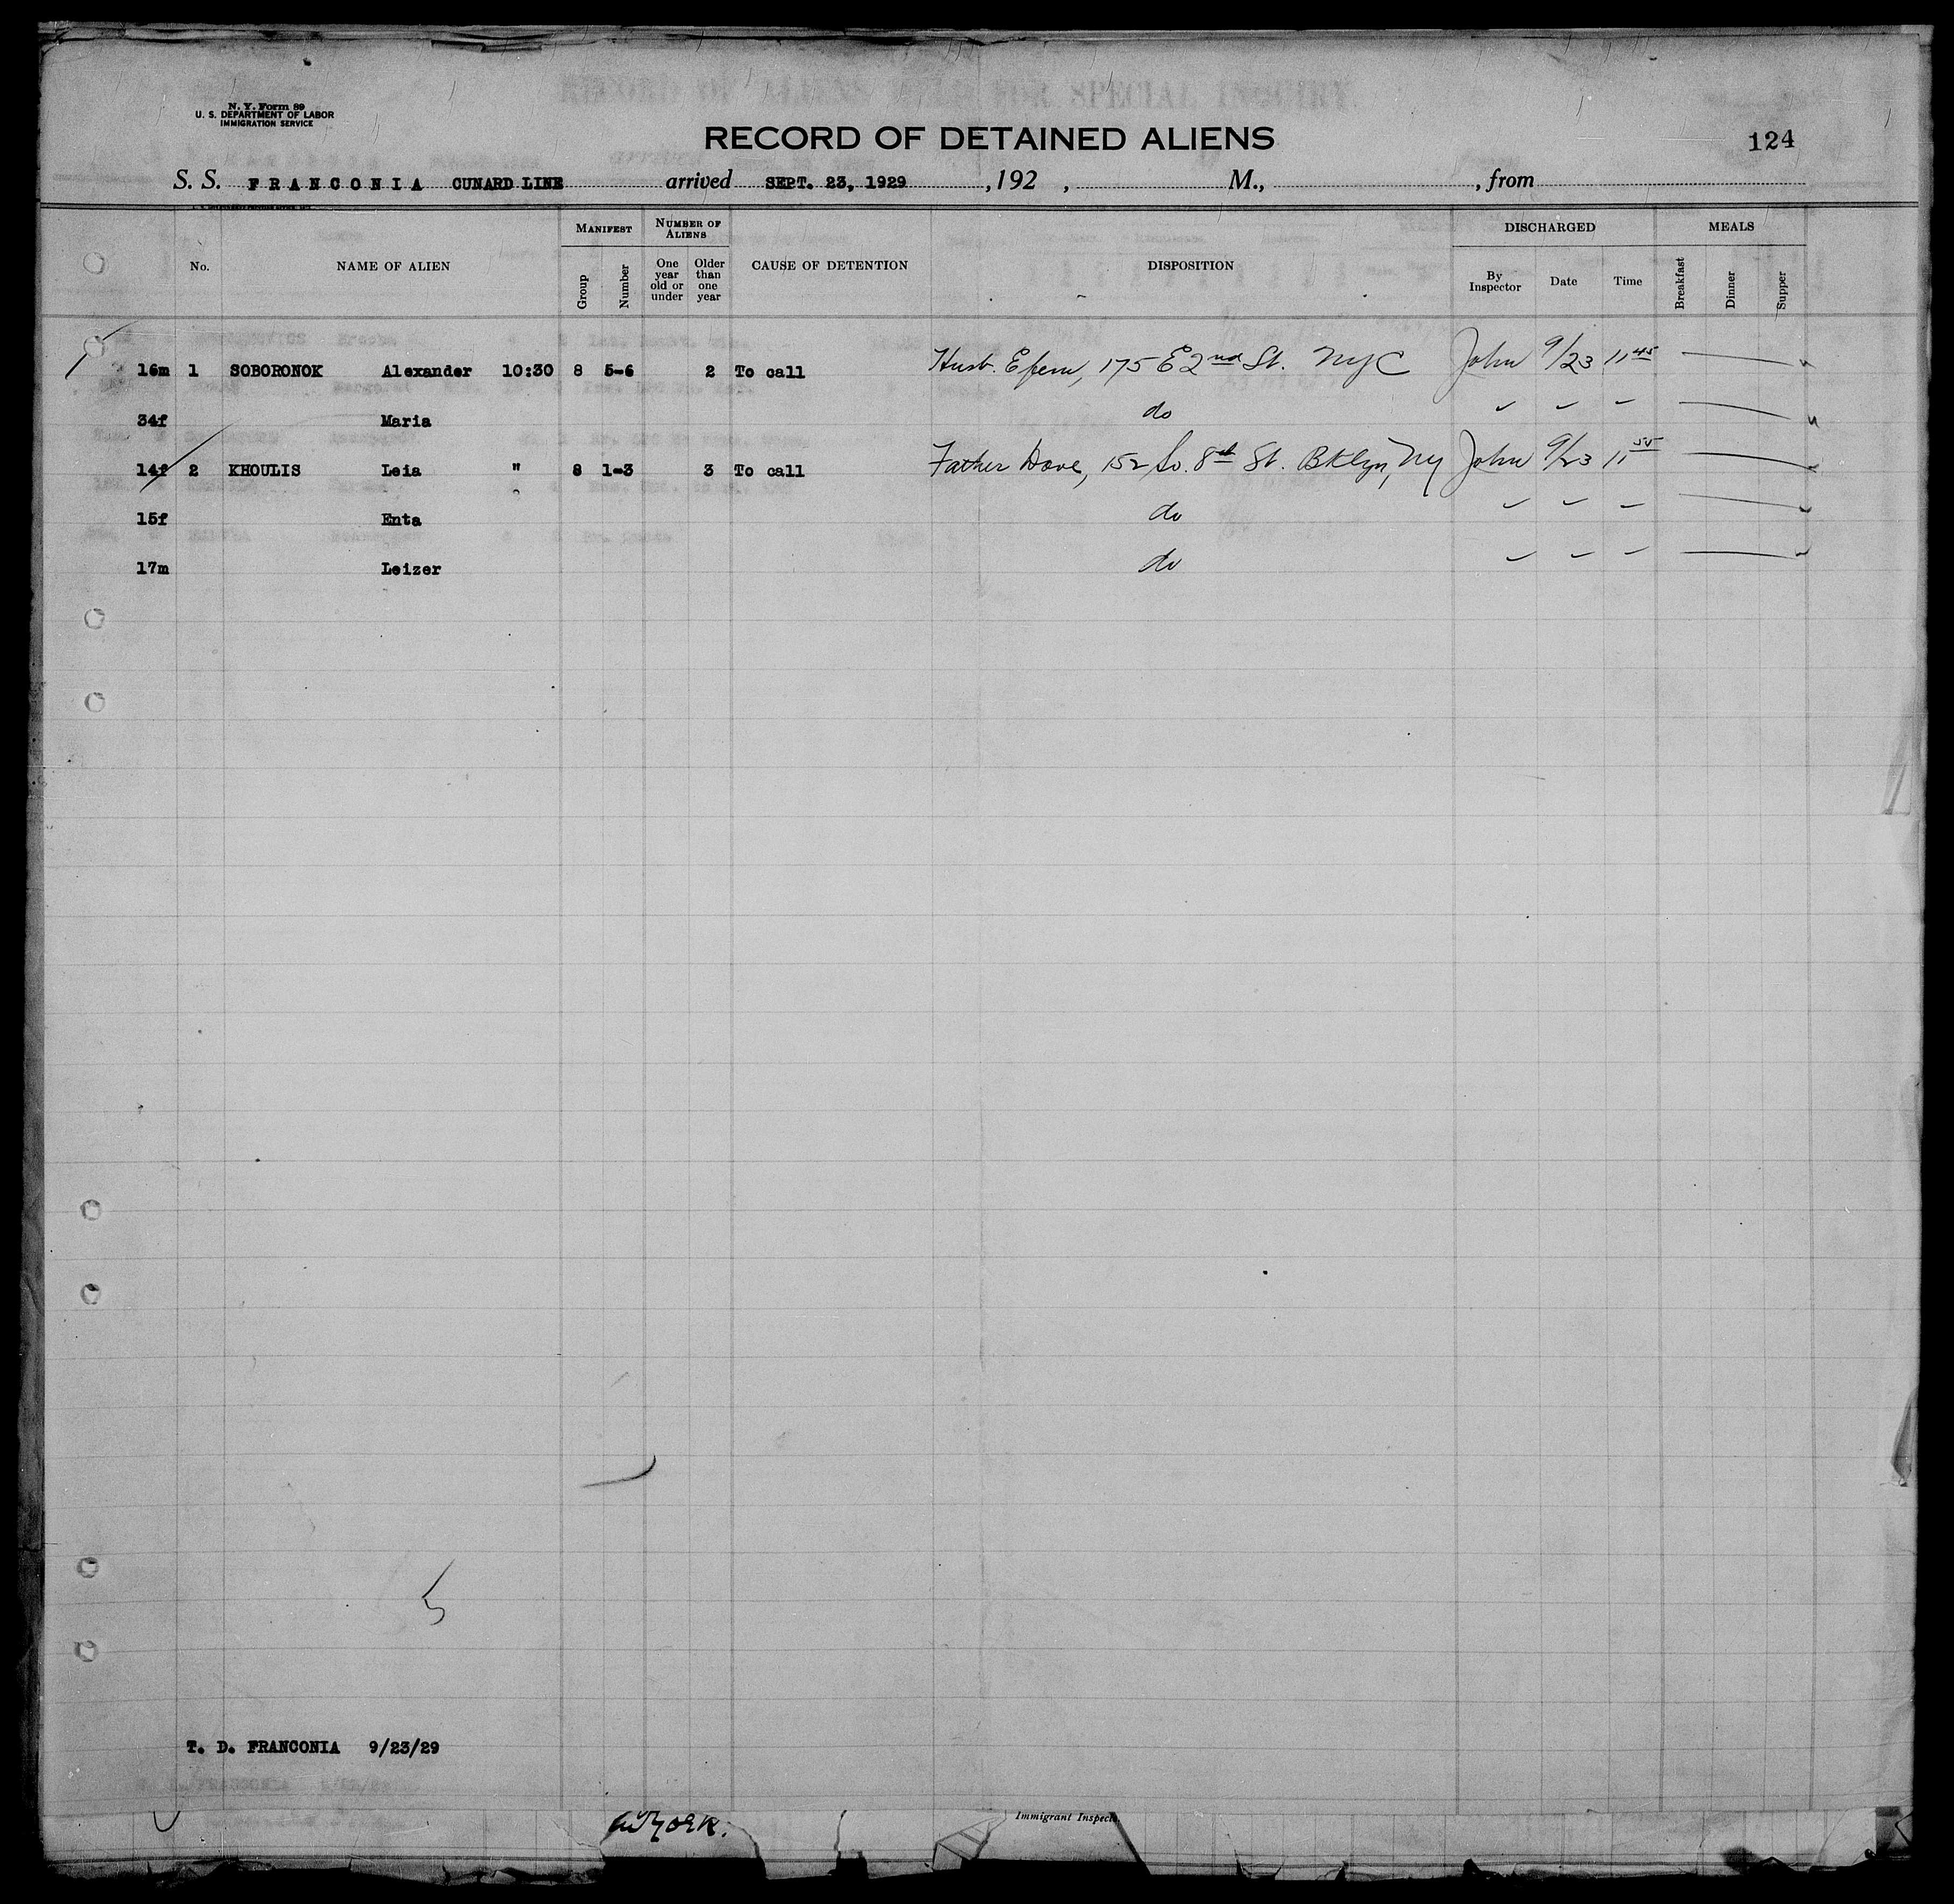 N. Y. Form 89
U. S. DEPARTMENT OF LABOR
IMMIGRATION SERVICE
RECORD OF DETAINED ALIENS
124
S. S. FRANCONIA CUNARD LINE arrived SEPT. 23, 1929 , 192 , M., , from
No. NAME OF ALIEN MANIFEST Group Number NUMBER OF ALIENS One year old or under Older than one year CAUSE OF DETENTION DISPOSITION DISCHARGED By Inspector Date Time MEALS Breakfast Dinner Supper
16m 1 SOBORONOK Alexander 10:30 8 5-6 2 To call Husb. Efem, 175 E 2nd St. NYC John 9/23 11 45
34f Maria do
14f 2 KHOULIS Leia " 8 1-3 3 To call Father Dave, 152 So. 8th St. Bklyn, NY John 9/23 11 55
15f Enta do
17m Leizer do
5
T. D. FRANCONIA 9/23/29
Immigrant Inspect